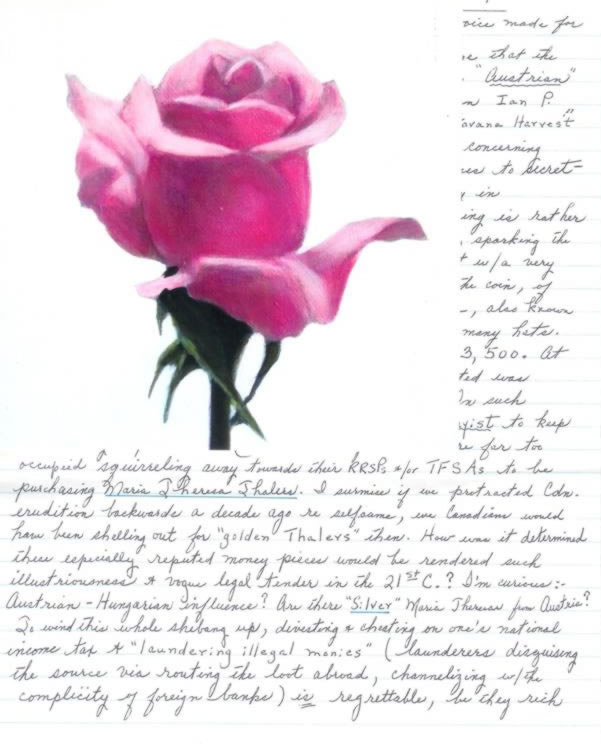 vice made for
e that the
. "Austrian"
n Ian P.
avana Harvest"
concerning
es to secret-
y in
ing is rather
, sparking the
t w/a very
the coin, of
-, also known
many hats.
3,500. At
ted was
In such
xist to keep
re far too
occupied "squirreling away" towards their RRSPs &/or TFSAs to be
purchasing Maria Theresa Thalers. I surmise if we protracted Cdn.
erudition backwards a decade ago re selfsame, we Canadians would
have been shelling out for "golden Thalers" then. How was it determined
these especially reputed money pieces would be rendered such
illustriousness & vogue legal tender in the 21st C.? I'm curious:-
Austrian-Hungarian influence? Are there "Silver" Maria Theresas from Austria?
To wind this whole shebang up, divesting & cheating on one's national
income tax & "laundering illegal monies" (launderers disguising
the source via routing the loot abroad, channelizing w/the
complicity of foreign banks) is regrettable, be they rich